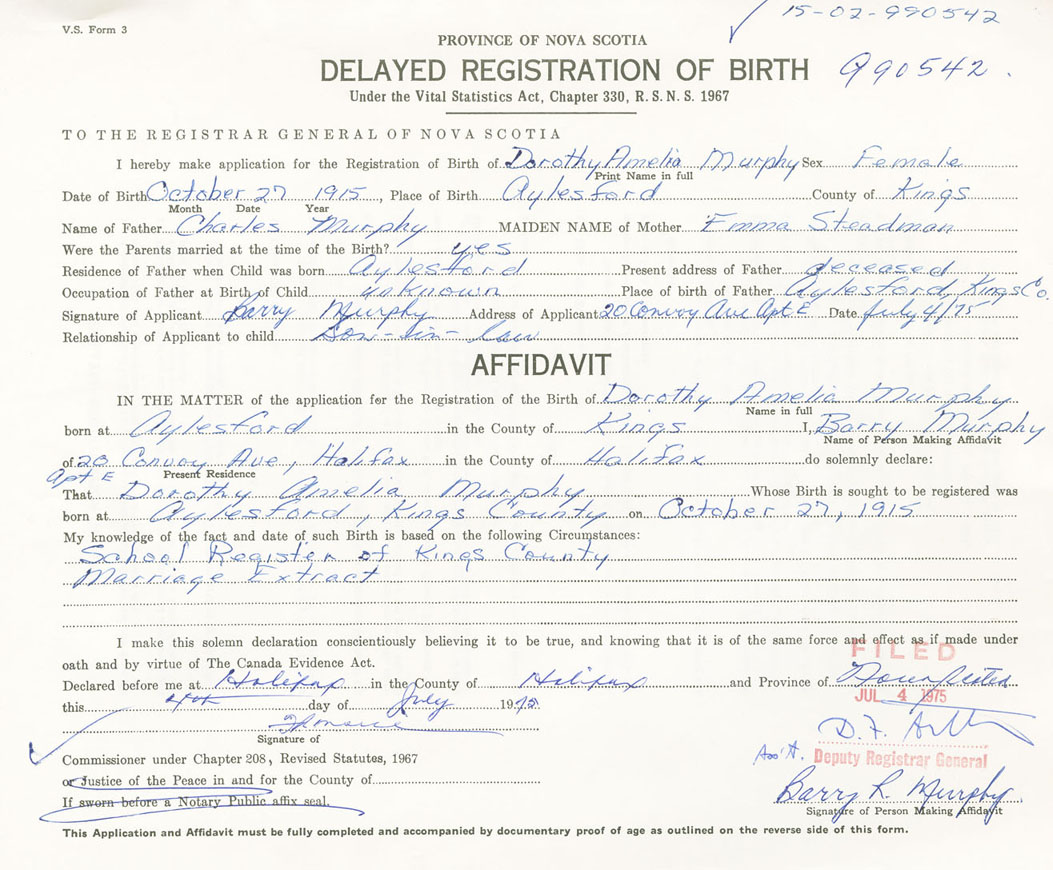 V.S. Form 3
15-02-990542
PROVINCE OF NOVA SCOTIA
DELAYED REGISTRATION OF BIRTH
990542.
Under the Vital Statistics Act, Chapter 330, R.S.N.S. 1967
TO THE REGISTRAR GENERAL OF NOVA SCOTIA
I hereby make application for the Registration of Birth of Dorothy Amelia Murphy Sex Female
Print Name in full
Date of Birth October 27 1915, Place of Birth Aylesford County of Kings
Month Date Year
Name of Father Charles Murphy MAIDEN NAME of Mother Emma Steadman
Were the Parents married at the time of the Birth? yes
Residence of Father when Child was born Aylesford Present address of Father deceased
Occupation of Father at Birth of Child unknown Place of birth of Father Aylesford, Kings Co.
Signature of Applicant Barry Murphy Address of Applicant 20 Convoy Ave Apt E Date July 4/75
Relationship of Applicant to child Son-in-law
AFFIDAVIT
IN THE MATTER of the application for the Registration of the Birth of Dorothy Amelia Murphy
Name in full
born at Aylesford in the County of Kings I, Barry Murphy
Name of Person Making Affidavit
of 20 Convoy Ave, Halifax in the County of Halifax do solemnly declare:
Apt E Present Residence
That Dorothy Amelia Murphy Whose Birth is sought to be registered was
born at Aylesford, Kings County on October 27, 1915
My knowledge of the fact and date of such Birth is based on the following Circumstances:
School Register of Kings County
Marriage Extract
I make this solemn declaration conscientiously believing it to be true, and knowing that it is of the same force and effect as if made under
oath and by virtue of The Canada Evidence Act.
FILED
Declared before me at Halifax in the County of Halifax and Province of Nova Scotia
this 4th day of July 19
JUL 4 1975
Signature of
D.F.
Commissioner under Chapter 208, Revised Statutes, 1967
Ass't. Deputy Registrar General
or Justice of the Peace in and for the County of
If sworn before a Notary Public affix seal.
Barry R. Murphy
Signature of Person Making Affidavit
This Application and Affidavit must be fully completed and accompanied by documentary proof of age as outlined on the reverse side of this form.